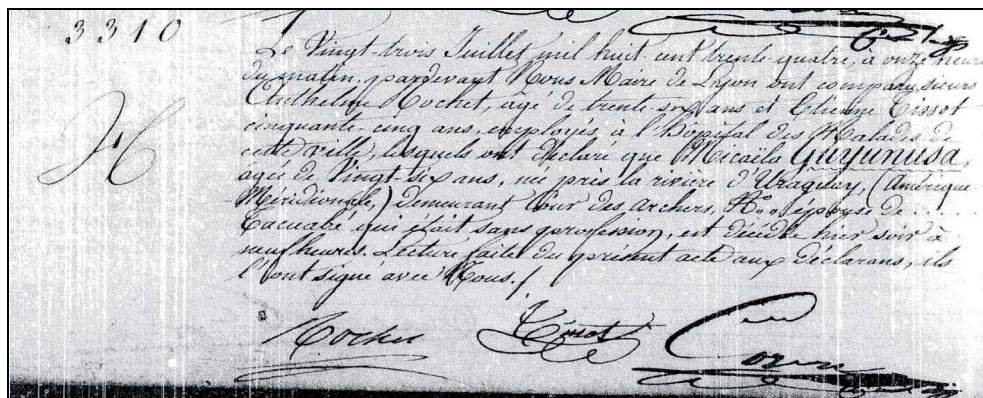 3310
Le Vingt-trois Juillet mil huit cent trente-quatre, à onze heures
du matin, pardevant Nous Maire de Lyon ont comparu, sieurs
Anthelme Rochet, âgé de trente-six ans et Etienne Tissot
cinquante-cinq ans, employés à l'hôpital des Malades de
cette ville, lesquels ont déclaré que Micaëla Guyunusa,
agée de Vingt-six ans, née près la rivière d'Uraguay, (Amérique
Méridionale,) demeurant Cour des Archers, N.º épouse de
Tacuabé qui était sans profession, est décédée hier soir à
neuf heures. Lecture faite du présent acte aux déclarans, ils
l'ont signé avec Nous./
H
Rochet Tissot